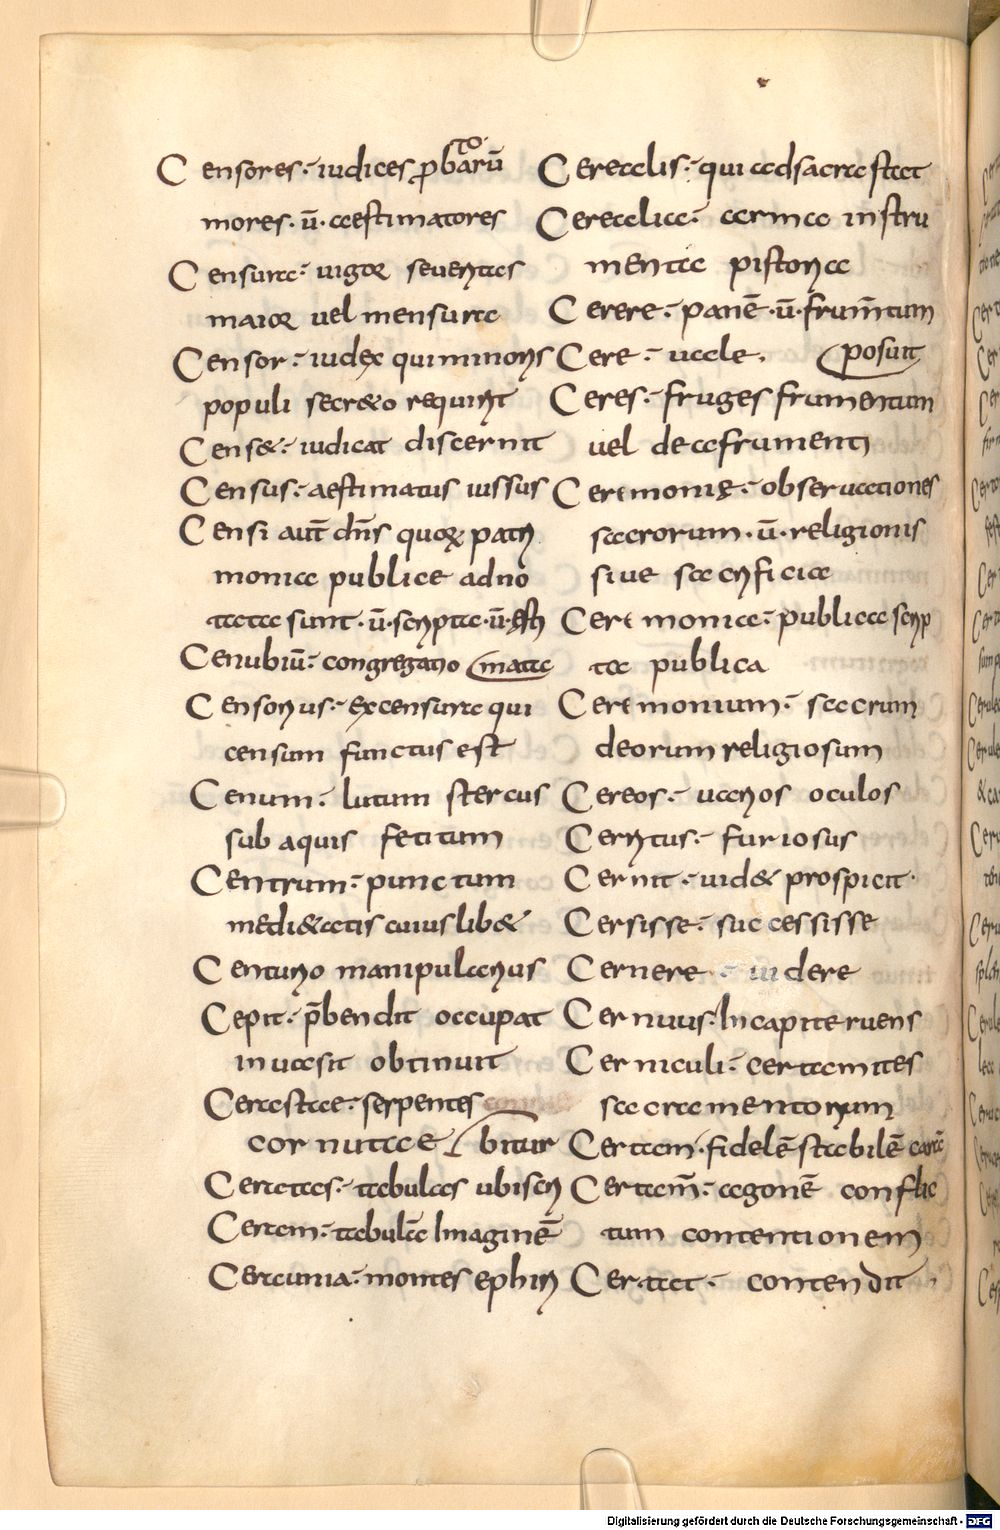 Censores:- iudices ꝓbatorū
mores · ū · aestimatores
Censura:- uigor seueritas
maior uel mensura
Censor:- iudex qui minoris
populi secr&o requirit
Cens&:- iudicat discernit
Census:- aestimatus iussus
Censi aut̄ dn̄s quoꝝ patri
monia publice adno
tata sunt · ū · scripta · ū · ęsti
Cenubiū:- congregatio mata
Censorius:- ex censura qui
censum functus est
Cenum:- lutum stercus
sub aquis fetitum
Centrum:- punctum
medi&atis cuius lib&
Centurio manipularius
Cepit:- p̄hendit occupat
inuasit obtinuit
Cerastae:- serpentes
cornutae bitur
Ceratas:- tabulas ubi scri
Ceram:- tabulā imaginē
Ceraunia:- montes ephiri
Cerealis:- qui ad sacra stat
Cerealia:- arma instru
menta pistoria
Cerere:- panē · ū · frum̄tum
Cere:- uale. posuit
Ceres:- fruges frumentum
uel dea frumenti
Cerimonię:- obseruationes
sacrorum · ū · religionis
siue sacrificia
Cerimonia:- publica scrip
ta publica
Cerimonium:- sacrum
deorum religiosum
Cereos:- uarios oculos
Ceritus:- furiosus
Cernit:- uid& prospicit·
Cersisse:- successisse
Cernere:- uidere
Cernuus:- In capite ruens
Cerniculi:- certamites
sacramentorum
Certam:- fidelē stabilē
Certam̄:- agonē conflic
tum contentionem
Certat:- contendit
Digitalisierung gefördert durch die Deutsche Forschungsgemeinschaft - DFG